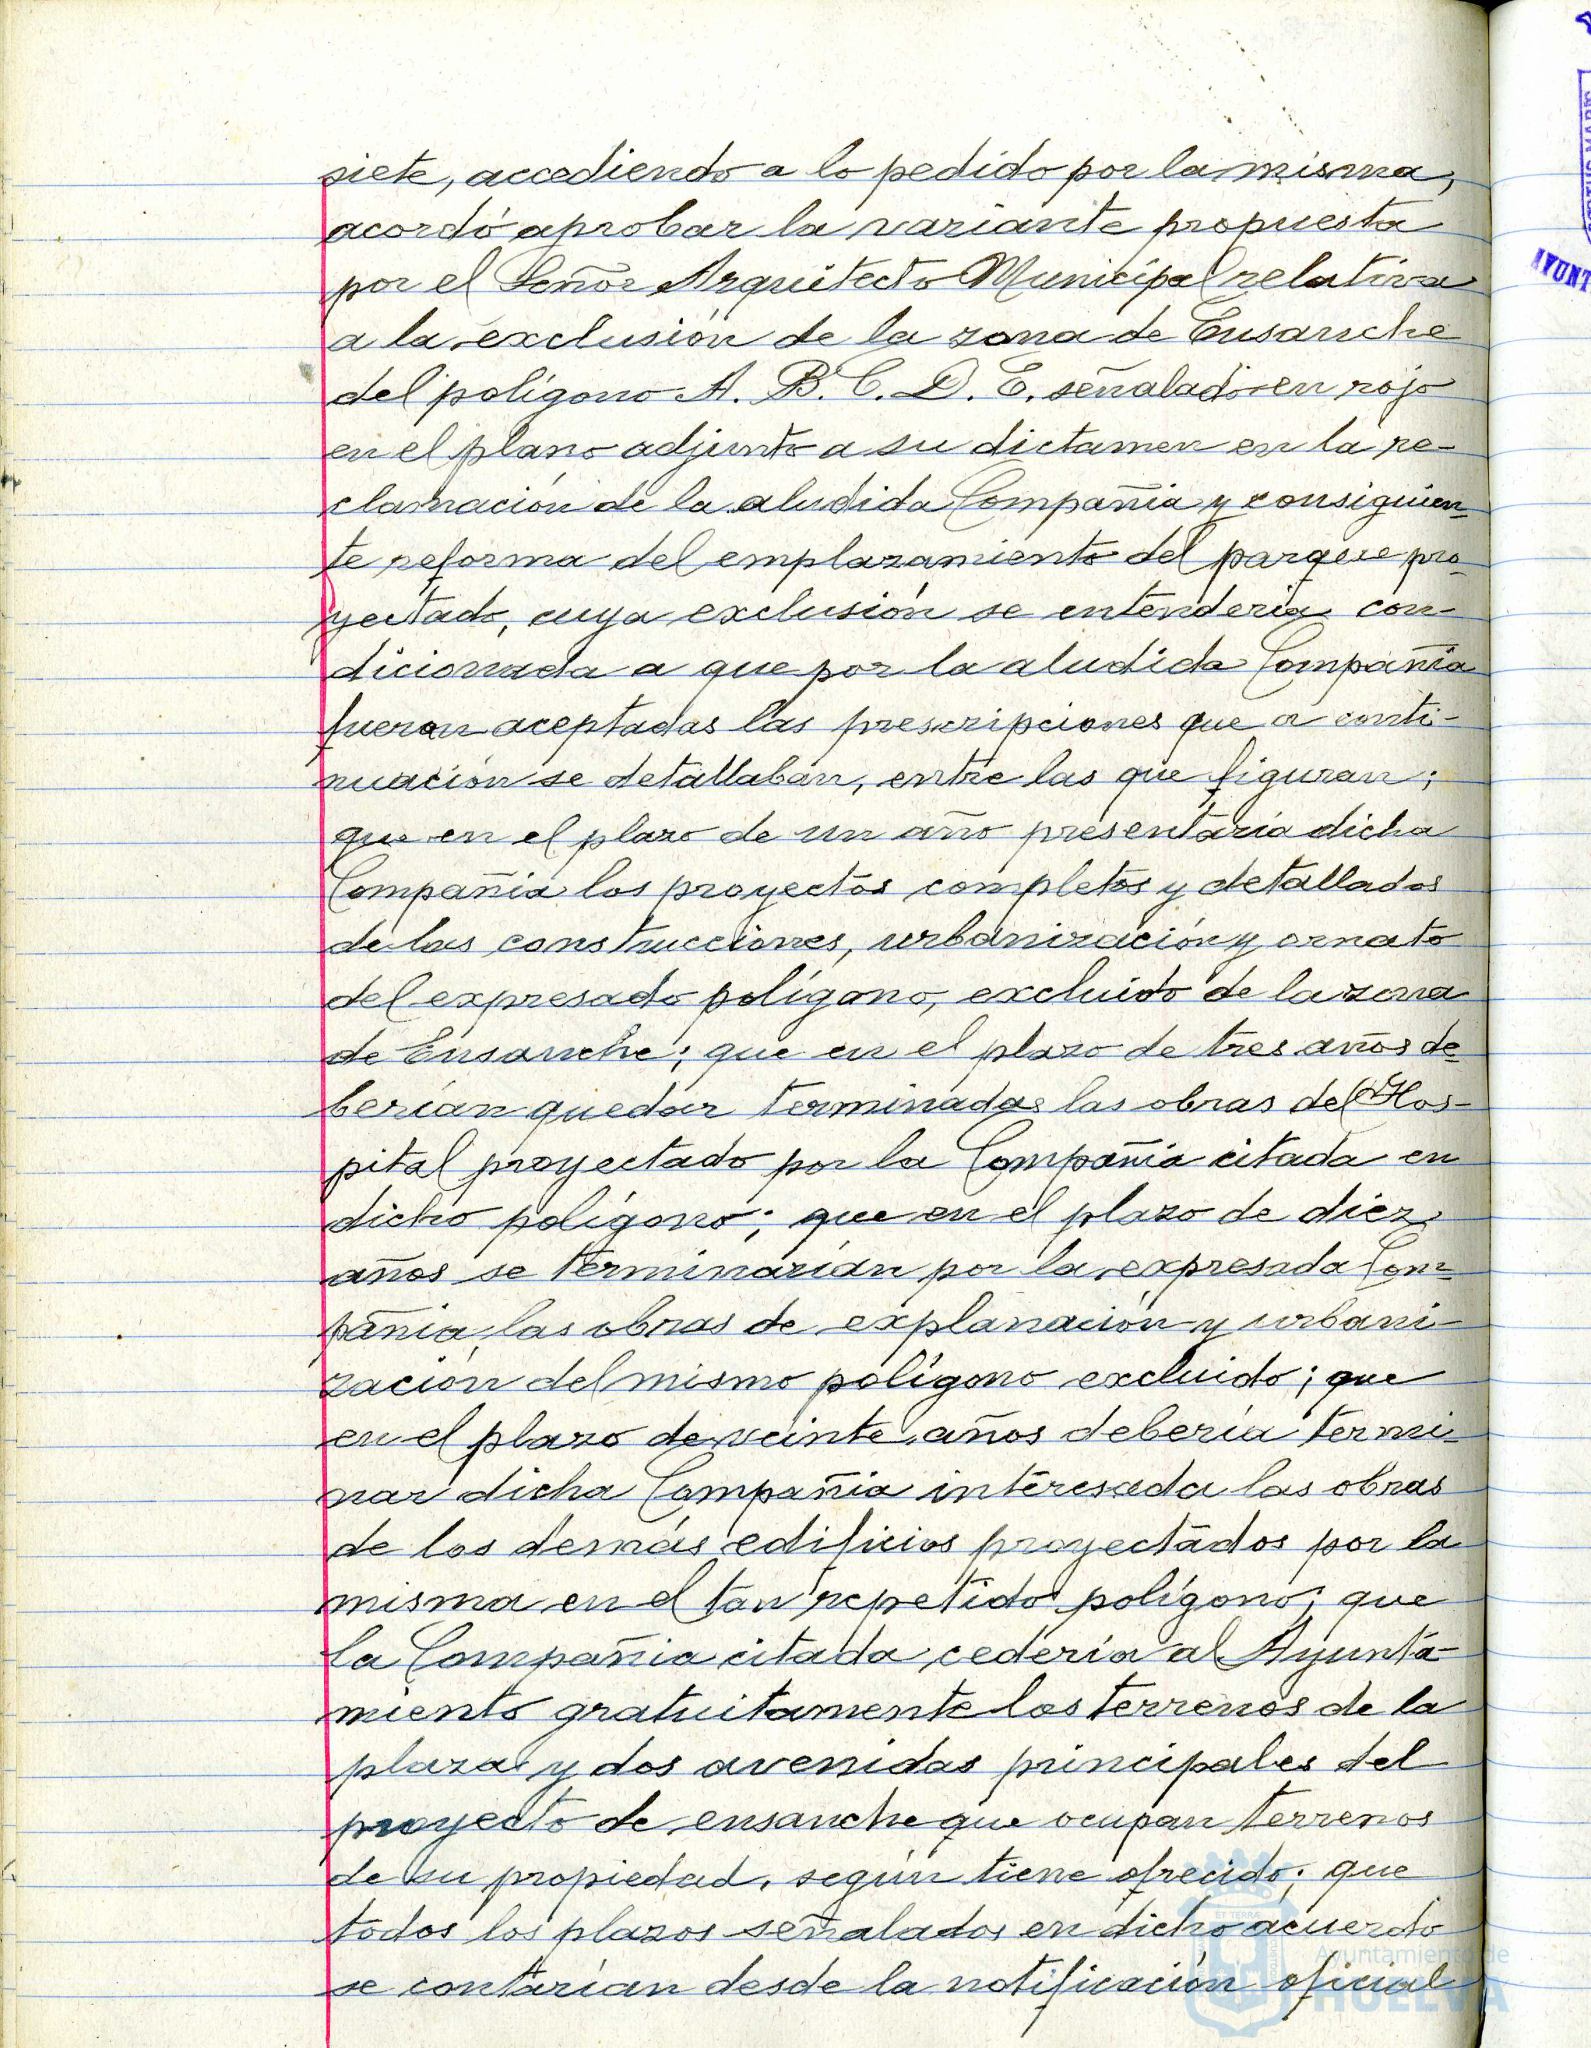 siete, accediendo a lo pedido por la misma,
acordó aprobar la variante propuesta
por el Señor Arquitecto Municipal relativa
a la exclusión de la zona de Ensanche
del polígono A. B. C. D. E. señalado en rojo
en el plano adjunto a su dictamen en la re-
clamación de la aludida Compañia y consiguien-
te reforma del emplazamiento del parque pro-
yectado, cuya exclusión se entenderia con-
dicionada a que por la aludida Compañia
fueran aceptadas las prescripciones que a conti-
nuación se detallaban, entre las que figuran;
que en el plazo de un año presentaria dicha
Compañia los proyectos completos y detallados
de las construcciones, urbanización y ornato
del expresado polígono, excluido de la zona
de Ensanche; que en el plazo de tres años de-
berian quedar terminadas las obras del Hos-
pital proyectado por la Compañia citada en
dicho polígono; que en el plazo de diez
años se terminarian por la expresada Com-
pañia las obras de explanación y urbani-
zación del mismo polígono excluido; que
en el plazo de veinte años deberia termi-
nar dicha Compañia interesada las obras
de los demás edificios proyectados por la
misma en el tan repetido polígono; que
la Compañia citada cederia al Ayunta-
miento gratuitamente los terrenos de la
plaza y dos avenidas principales del
proyecto de ensanche que ocupan terrenos
de su propiedad, según tiene ofrecido; que
todos los plazos señalados en dicho acuerdo
se contarian desde la notificación oficial
Ayuntamiento de
HUELVA
AYUNT